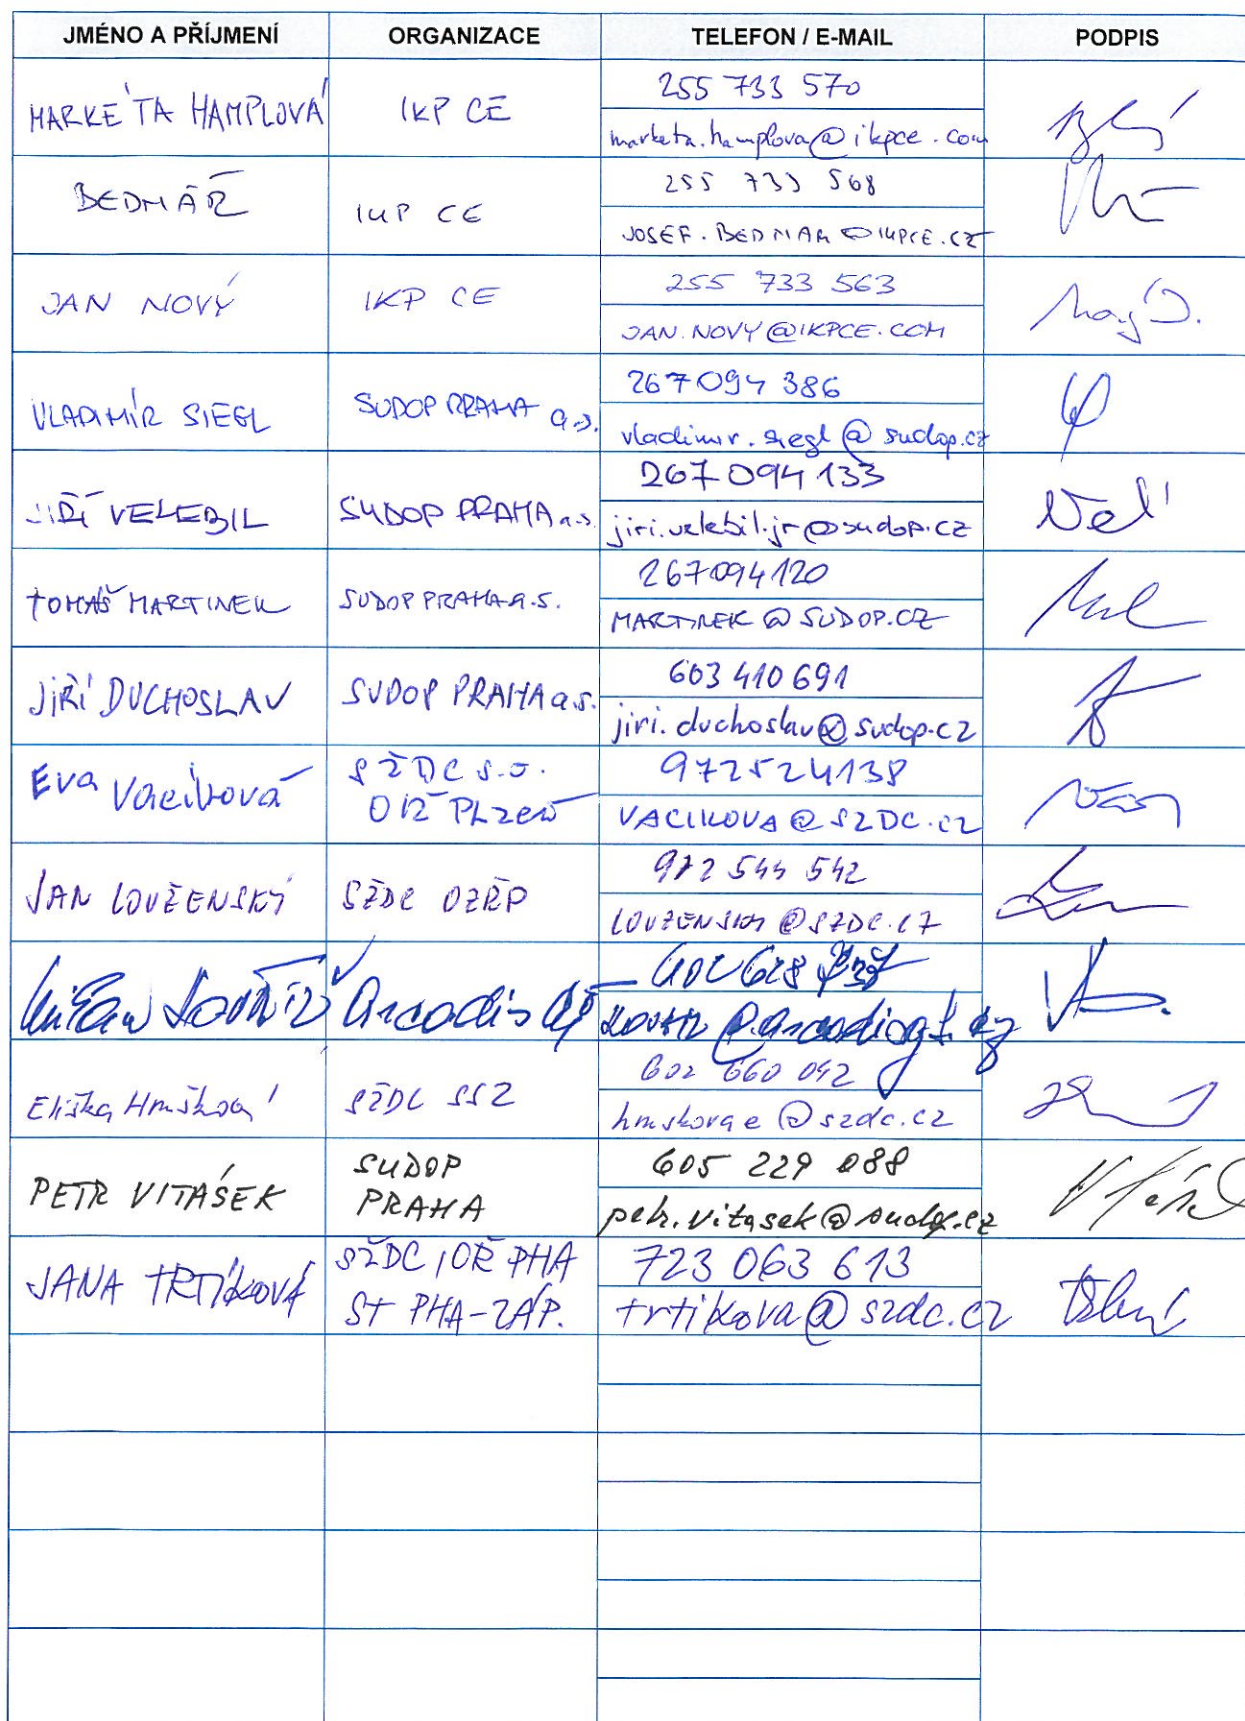 JMÉNO A PŘÍJMENÍ ORGANIZACE TELEFON / E-MAIL PODPIS
MARKÉTA HAMPLOVÁ IKP CE 255 733 570
marketa.hamplova@ikpce.com
BEDNÁŘ IKP CE 255 733 568
JOSEF.BEDNAR@IKPCE.CZ
JAN NOVÝ IKP CE 255 733 563
JAN.NOVY@IKPCE.COM
VLADIMÍR SIEGL SUDOP PRAHA a.s. 267094 386
vladimir.siegl@sudop.cz
JIŘÍ VELEBIL SUDOP PRAHA a.s. 267 094 133
jiri.velebil.jr@sudop.cz
TOMÁŠ MARTINEK SUDOP PRAHA a.s. 267094120
MARTINEK@SUDOP.CZ
JIŘÍ DUCHOSLAV SUDOP PRAHA a.s. 603 410 691
jiri.duchoslav@sudop.cz
Eva Vacíková SŽDC s.o. 972524138
OŘ PLzeň VACIKOVA@SZDC.cz
JAN LOUŽENSKÝ SŽDC OZŘP 972 544 542
LOUZENSKY@SZDC.CZ
Milan Arcadis 602 628
Eliška Hrnšková SŽDC SSZ 602 660 042
hrnskovae@szdc.cz
PETR VITÁSEK SUDOP 605 229 088
PRAHA petr.vitasek@sudop.cz
JANA TRTÍKOVÁ SŽDC, OŘ PHA 723 063 613
ST PHA-ZÁP. trtikova@szdc.cz